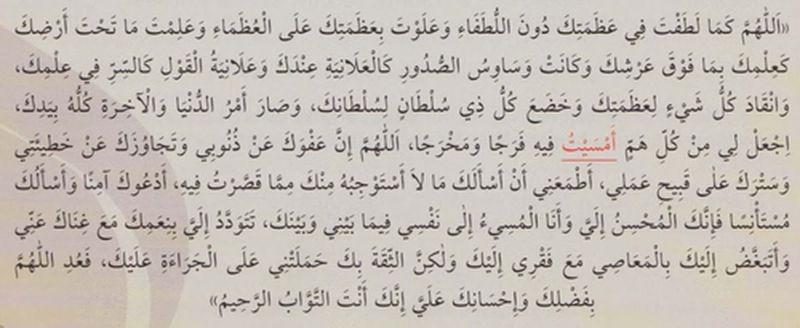 «اَللّٰهُمَّ كَمَا لَطَفْتَ فِي عَظَمَتِكَ دُونَ اللُّطَفَاءِ وَعَلَوْتَ بِعَظَمَتِكَ عَلَى الْعُظَمَاءِ وَعَلِمْتَ مَا تَحْتَ أَرْضِكَ
كَعِلْمِكَ بِمَا فَوْقَ عَرْشِكَ وَكَانَتْ وَسَاوِسُ الصُّدُورِ كَالْعَلَانِيَةِ عِنْدَكَ وَعَلَانِيَةُ الْقَوْلِ كَالسِّرِّ فِي عِلْمِكَ،
وَانْقَادَ كُلُّ شَيْءٍ لِعَظَمَتِكَ وَخَضَعَ كُلُّ ذِي سُلْطَانٍ لِسُلْطَانِكَ، وَصَارَ أَمْرُ الدُّنْيَا وَالْآخِرَةِ كُلُّهُ بِيَدِكَ،
اِجْعَلْ لِي مِنْ كُلِّ هَمٍّ أَمْسَيْتُ فِيهِ فَرَجًا وَمَخْرَجًا، اَللّٰهُمَّ إِنَّ عَفْوَكَ عَنْ ذُنُوبِي وَتَجَاوُزَكَ عَنْ خَطِيئَتِي
وَسَتْرَكَ عَلٰى قَبِيحِ عَمَلِي، أَطْمَعَنِي أَنْ أَسْأَلَكَ مَا لاَ أَسْتَوْجِبُهُ مِنْكَ مِمَّا قَصَّرْتُ فِيهِ، أَدْعُوكَ آمِنًا وَأَسْأَلُكَ
مُسْتَأْنِسًا فَإِنَّكَ الْمُحْسِنُ إِلَيَّ وَأَنَا الْمُسِيءُ إِلٰى نَفْسِي فِيمَا بَيْنِي وَبَيْنَكَ، تَتَوَدَّدُ إِلَيَّ بِنِعَمِكَ مَعَ غِنَاكَ عَنِّي
وَأَتَبَغَّضُ إِلَيْكَ بِالْمَعَاصِي مَعَ فَقْرِي إِلَيْكَ وَلٰكِنَّ الثِّقَةَ بِكَ حَمَلَتْنِي عَلَى الْجَرَاءَةِ عَلَيْكَ، فَعُدِ اللّٰهُمَّ
بِفَضْلِكَ وَإِحْسَانِكَ عَلَيَّ إِنَّكَ أَنْتَ التَّوَّابُ الرَّحِيمُ»